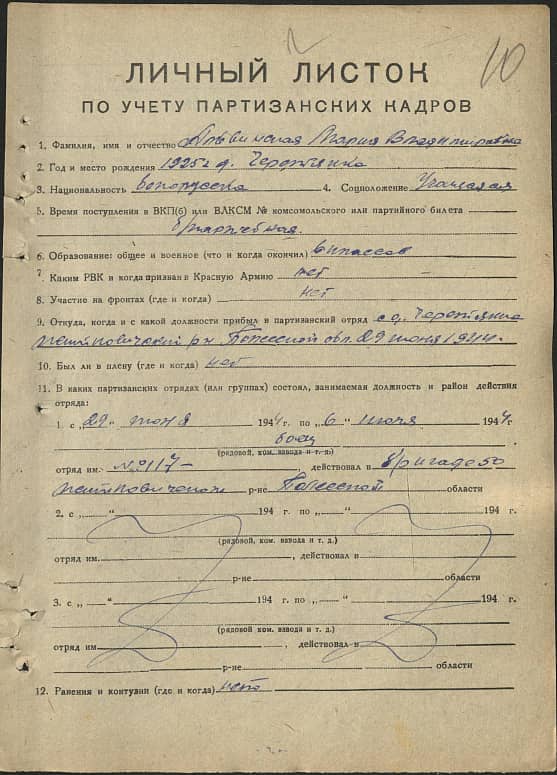 10
ЛИЧНЫЙ ЛИСТОК
ПО УЧЕТУ ПАРТИЗАНСКИХ КАДРОВ
1. Фамилия, имя и отчество Мария Владимировна
2. Год и место рождения 1925 г. д.
3. Национальность белорусска 4. Соцположение Учащаяся
5. Время поступления в ВКП(б) или ВЛКСМ № комсомольского или партийного билета
б/партейная.
6. Образование: общее и военное (что и когда окончил) 6 классов
7. Каким РВК и когда призван в Красную Армию нет –
8. Участие на фронтах (где и когда) нет
9. Откуда, когда и с какой должности прибыл в партизанский отряд с д.
р-н Полесской обл. 29 июня 1944 г.
10. Был ли в плену (где и когда) нет
11. В каких партизанских отрядах (или группах) состоял, занимаемая должность и район действия
отряда:
1. с „29" июня 1944 г. по „6 " июля 1944 г.
боец
(рядовой, ком. взвода и т. д.)
отряд им. № 117 – действовал в бригаде 50
р-не Полесской области
2. с „ " 194 г. по „ " 194 г.
(рядовой, ком. взвода и т. д.)
отряд им. , действовал в
р-не области
3. с „ " 194 г. по „ " 194 г.
(рядовой ком. взвода и т. д.)
отряд им , действовал в
р-не области
12. Ранения и контузии (где и когда) нет